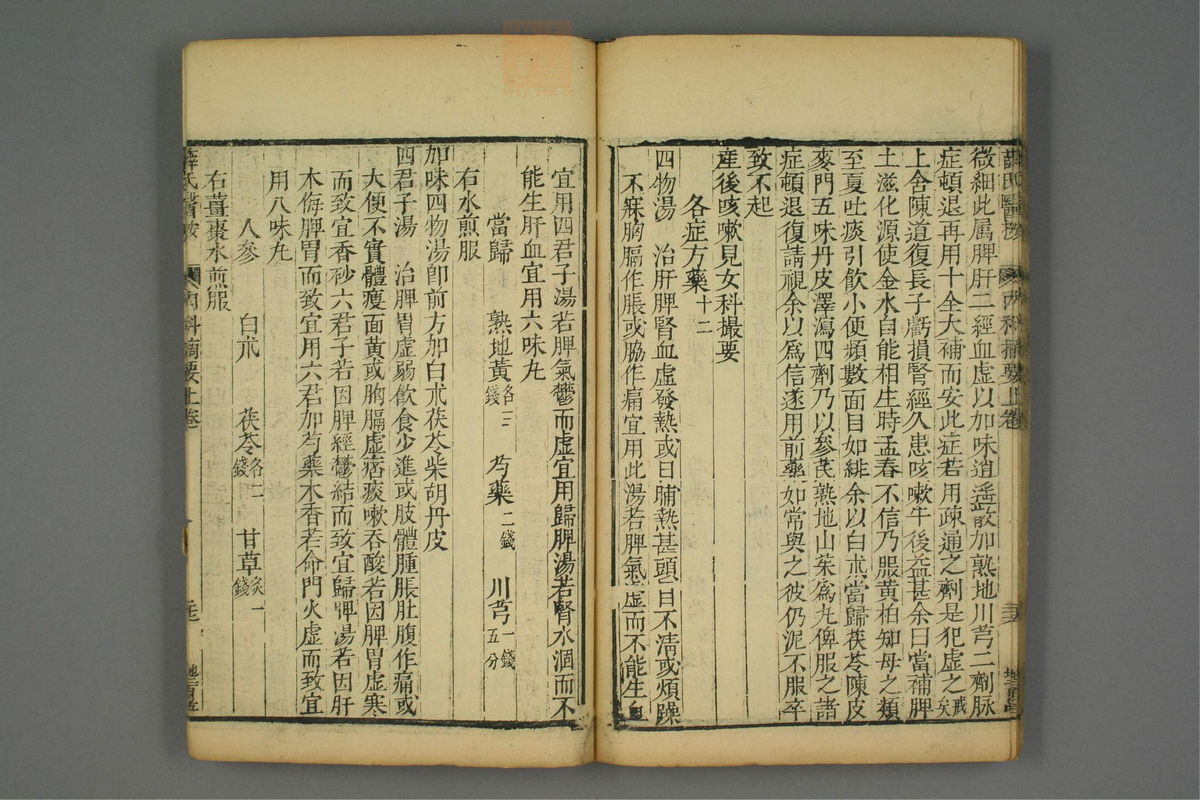 薛氏醫按 內科摘要上卷
微細此屬脾肝二經血虛以加味逍遙散加熟地川芎二劑脉
症頓退再用十全大補而安此症若用疎通之劑是犯虛之戒矣
上舍陳道復長子虧損腎經久患咳嗽午後益甚余曰當補脾
土滋化源使金水自能相生時孟春不信乃服黃柏知母之類
至夏吐痰引飲小便頻數面目如緋余以白朮當歸茯苓陳皮
麥門五味丹皮澤瀉四劑乃以參芪熟地山茱爲丸俾服之諸
症頓退復請視余以爲信遂用前藥如常與之彼仍泥不服卒
致不起
產後咳嗽見女科撮要
各症方藥十二
四物湯 治肝脾腎血虛發熱或日晡熱甚頭目不清或煩躁
不寐胸膈作脹或脇作痛宜用此湯若脾氣虛而不能生血
宜用四君子湯若脾氣鬱而虛宜用歸脾湯若腎水涸而不
能生肝血宜用六味丸
當歸 熟地黃各三錢 芍藥二錢 川芎一錢五分
右水煎服
加味四物湯卽前方加白朮茯苓柴胡丹皮
四君子湯 治脾胃虛弱飲食少進或肢體腫脹肚腹作痛或
大便不實體瘦面黃或胸膈虛痞痰嗽吞酸若因脾胃虛寒
而致宜香砂六君子若因脾經鬱結而致宜歸脾湯若因肝
木侮脾胃而致宜用六君加芍藥木香若命門火虛而致宜
用八味丸
人參 白朮 茯苓各二錢 甘草炙一錢
右薑棗水煎服
薛氏醫按 內科摘要上卷